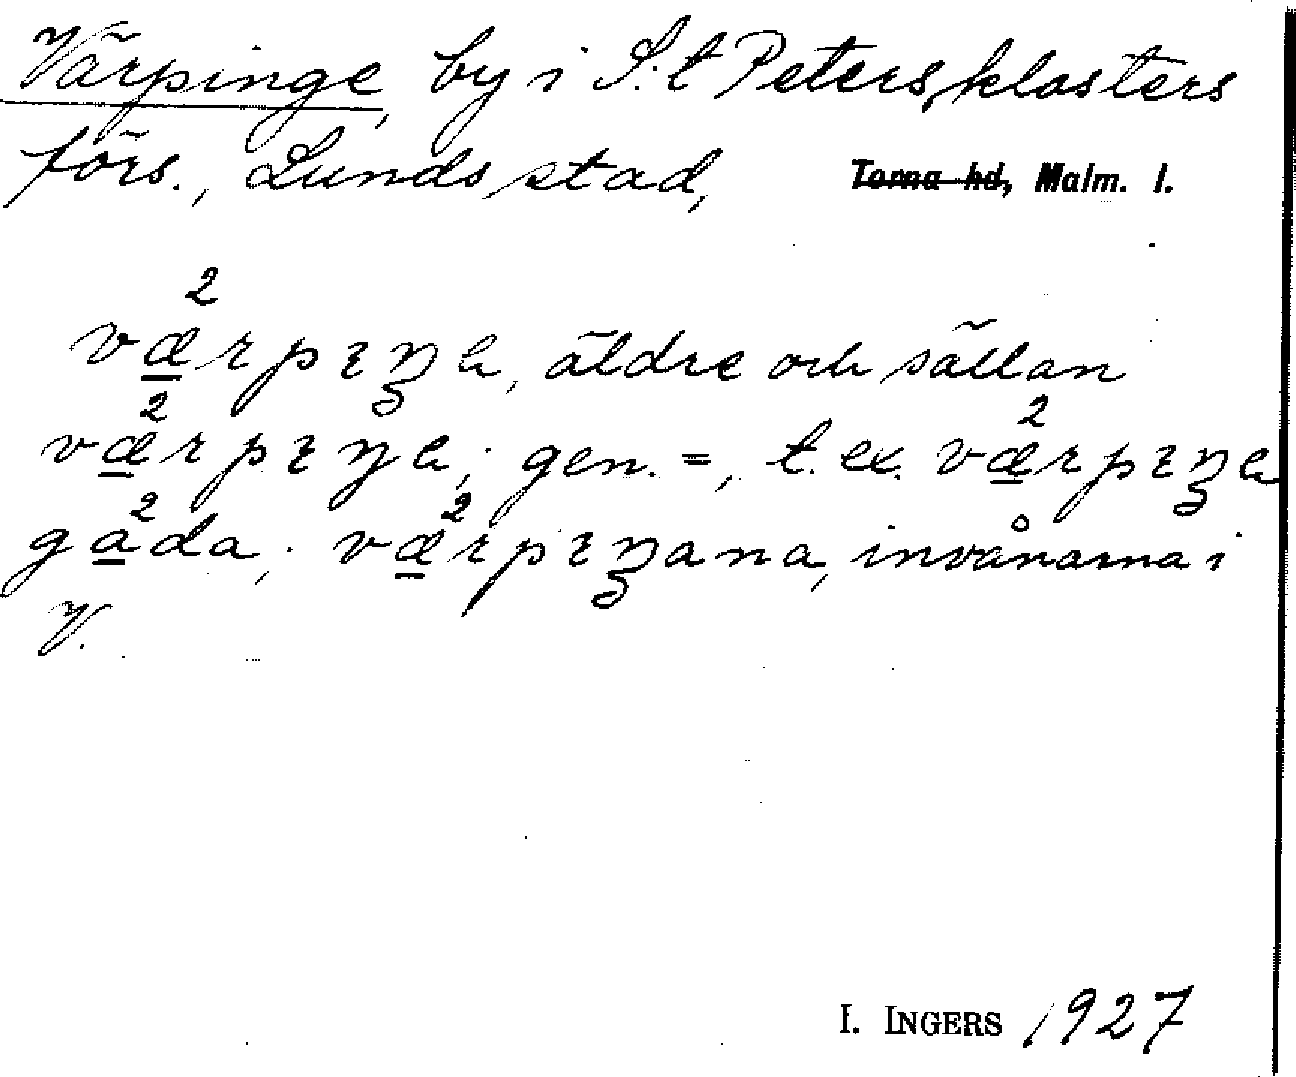 Värpinge, by i S:t Peters klosters
förs., Lunds stad, Torna hd, Malm. l.
væ²rpıŋə, äldre och sällan
væ²rpıŋə; gen. =, t. ex. væ²rpıŋə
ga²da; væ²rpıŋana, invånarna i
V.
I. INGERS 1927